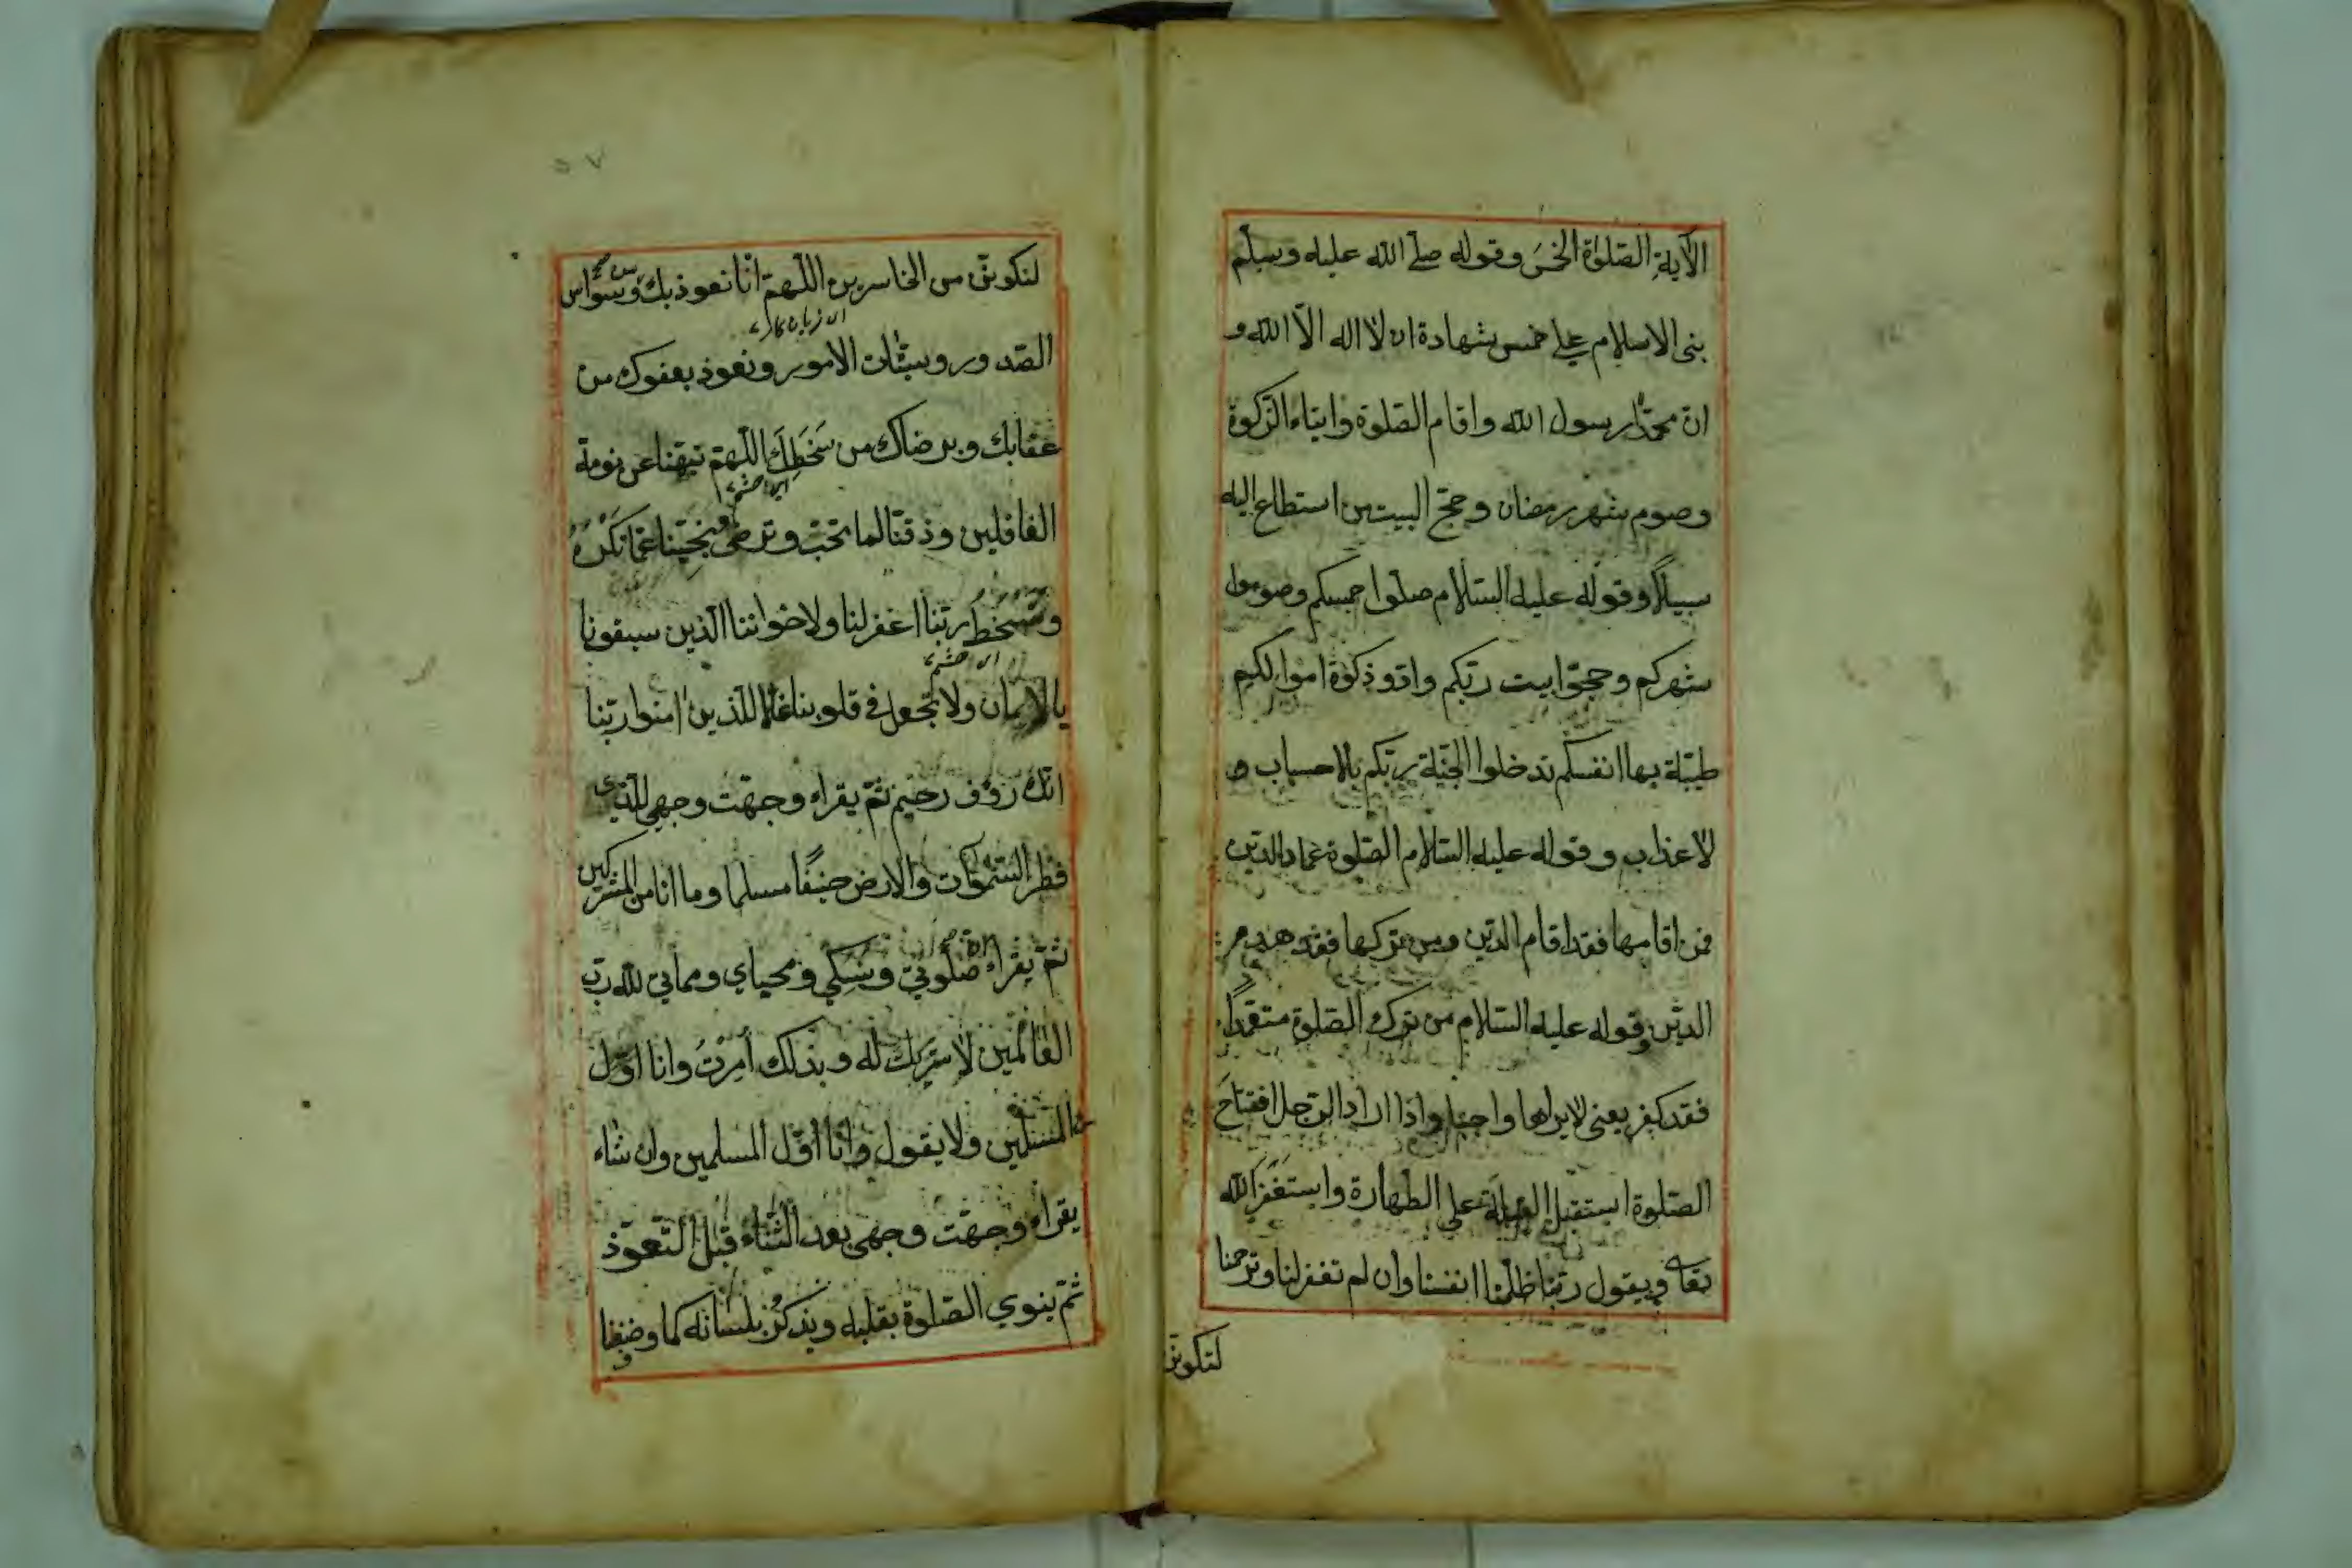 الآية الصلوة الخمس وقوله صلى الله عليه وسلم
بنى الاسلام على خمس شهادة ان لا اله الا الله و
ان محمدا رسول الله واقام الصلوة وايتاء الزكوة
وصوم شهر رمضان وحج البيت من استطاع اليه
سبيلا وقوله عليه السلام صلوا خمسكم وصوموا
شهركم وحجوا بيت ربكم وادوا زكوة اموالكم
طيبة بها انفسكم تدخلوا الجنة ربكم بلا حساب و
لا عذاب وقوله عليه السلام الصلوة عماد الدين
فمن اقامها فقد اقام الدين ومن تركها فقد هدم
الدين وقوله عليه السلام من ترك الصلوة متعمدًا
فقد كفر يعنى لا يراها واجبا واذا اراد الرجل افتتاح
الصلوة استقبل القبلة على الطهارة واستغفر الله
تعالى ويقول ربنا ظلمنا انفسنا وان لم تغفر لنا وترحمنا
لنكونن
٥٧
لنكونن من الخاسرين اللهم انا نعوذ بك من وسواس
الصدور وسيئات الامور ونعوذ بعفوك من
عقابك وبرضاك من سَخَطِكَ اللهم نبهنا عن نومة
الغافلين وذقنا لما تحب وترضى ونجينا عما تكره
وتسخط ربنا اغفر لنا ولاخواننا الذين سبقونا
بالايمان ولا تجعل فى قلوبنا غلا للذين امنوا ربنا
انك رؤف رحيم ثم يقراء وجهت وجهى للذى
فطر السموات والارض حنيفًا مسلما وما انا من المشركين
ثم يقراء ان صلوتي ونسكي ومحياي ومماتي لله رب
العالمين لا شريك له وبذلك أمرتُ وانا اول
المسلمين ولا يقول وانا أوّل المسلمين وان شاء
يقراء وجهت وجهى بعد الثناء قبل التعوذ
ثم ينوي الصلوة بقلبه ويذكر بلسانه كما وصفنا